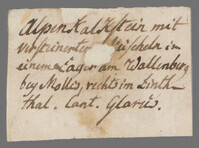 Alpen Kalkstein mit
versteinerten Muscheln in
einem Lager am Wallenberg
bey Mollis, rechts im Linth-
thal. Cant. Glarus.